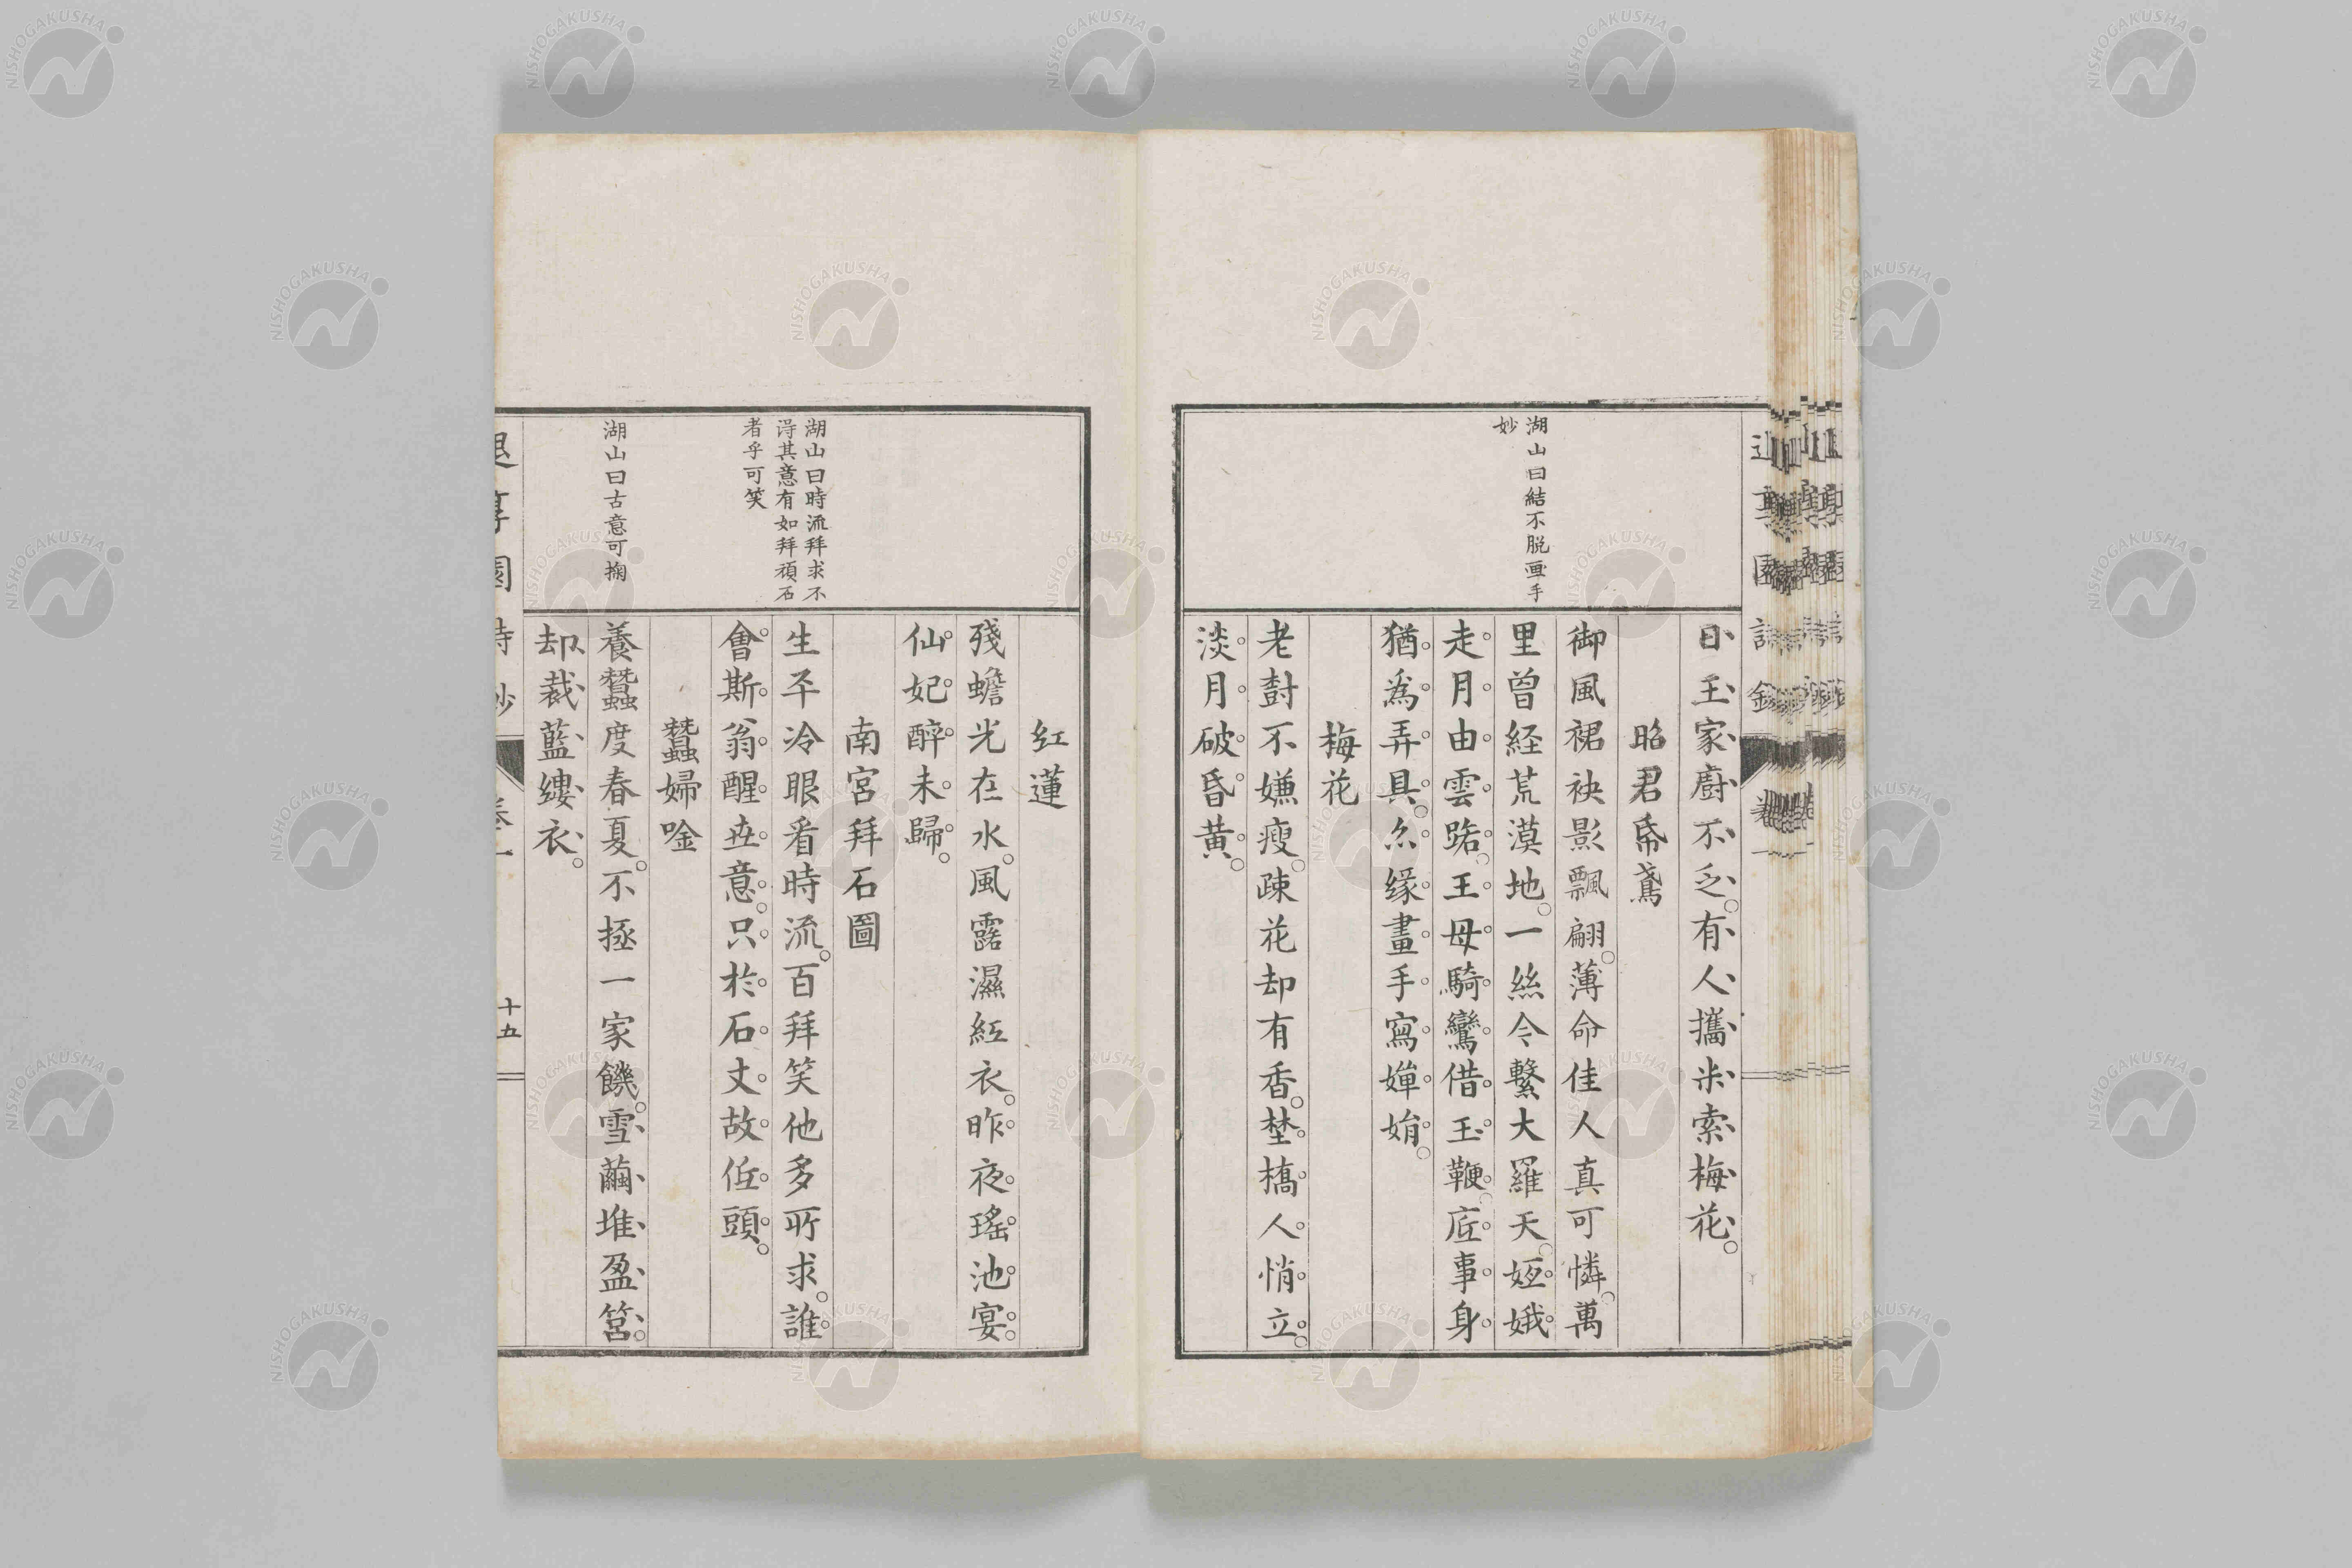 日玉家廚不乏有人攜米索梅花
昭君帋鳶
御風裙袂影飄翩薄命佳人真可憐萬
里曾経荒漠地一絲今繫大羅天姮娥
走月由雲踏王母騎鸞借玉鞭底事身
猶為弄具尒縁畫手寫嬋娟
梅花
老對不嫌瘦疎花却有香埜橋人悄立
淡月破昏黄
湖山曰結不脱画手
妙
紅蓮
殘蟾光在水風露濕紅衣昨夜瑤池宴
仙妃醉未歸
南宮拜石圖
生平冷眼看時流百拜笑他多所求誰
會斯翁醒世意只於石丈故低頭
蠶婦唫
養蠶度春夏不拯一家饑雪繭堆盈筥
却裁藍縷衣
湖山曰時流拜求不
得其意有如拜頑石
者乎可笑
湖山曰古意可掬
十五
NISHOGAKUSHA